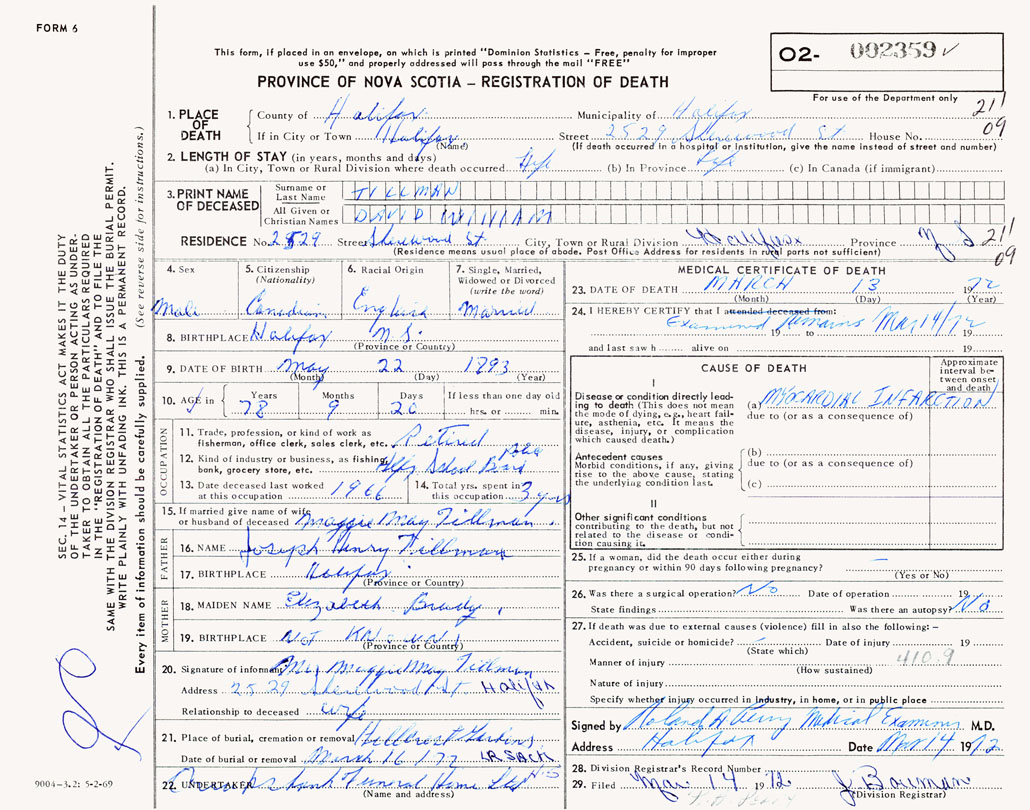 FORM 6
This form, if placed in an envelope, on which is printed "Dominion Statistics – Free, penalty for improper
use $50," and properly addressed will pass through the mail "FREE"
PROVINCE OF NOVA SCOTIA – REGISTRATION OF DEATH
O2- 002359 ✓
For use of the Department only
211
09
1. PLACE OF DEATH
County of Halifax Municipality of Halifax
If in City or Town Halifax Street 2529 Sherwood St House No.
(Name) (If death occurred in a hospital or institution, give the name instead of street and number)
2. LENGTH OF STAY (in years, months and days)
(a) In City, Town or Rural Division where death occurred Life (b) In Province Life (c) In Canada (if immigrant)
3. PRINT NAME OF DECEASED
Surname or Last Name TILLMAN
All Given or Christian Names DAVID WILLIAM
RESIDENCE No. 2529 Street Sherwood St. City, Town or Rural Division Halifax Province N S 211
(Residence means usual place of abode. Post Office Address for residents in rural parts not sufficient) 09
4. Sex Male
5. Citizenship (Nationality) Canadian
6. Racial Origin English
7. Single, Married, Widowed or Divorced (write the word) Married
8. BIRTHPLACE Halifax N.S.
(Province or Country)
9. DATE OF BIRTH May 22 1893
(Month) (Day) (Year)
10. AGE in Years Months Days If less than one day old
78 9 20 hrs. or min.
OCCUPATION
11. Trade, profession, or kind of work as
fisherman, office clerk, sales clerk, etc. Retired
12. Kind of industry or business, as fishing,
bank, grocery store, etc. Hlfx School Board
13. Date deceased last worked
at this occupation 1966
14. Total yrs. spent in
this occupation 3 yrs
15. If married give name of wife
or husband of deceased Maggie May Tillman
FATHER
16. NAME Joseph Henry Tillman
17. BIRTHPLACE Halifax
(Province or Country)
MOTHER
18. MAIDEN NAME Elizabeth Brady
19. BIRTHPLACE NOT KNOWN
(Province or Country)
20. Signature of informant Mrs Maggie May Tillman
Address 2529 Sherwood St Halifax
Relationship to deceased wife
21. Place of burial, cremation or removal Hillcrest Gardens
Date of burial or removal March 16/72 LR SACK
22. UNDERTAKER Funeral Home Ltd
(Name and address)
MEDICAL CERTIFICATE OF DEATH
23. DATE OF DEATH MARCH 13 1972
(Month) (Day) (Year)
24. I HEREBY CERTIFY that I attended deceased from:
Examined Remains Mar 14/72
19 to 19
and last saw h alive on 19
CAUSE OF DEATH
Approximate interval between onset and death
I
Disease or condition directly leading to death (This does not mean the mode of dying, e.g., heart failure, asthenia, etc. It means the disease, injury, or complication which caused death.)
(a) MYOCARDIAL INFARCTION
due to (or as a consequence of)
Antecedent causes
Morbid conditions, if any, giving rise to the above cause, stating the underlying condition last.
(b)
due to (or as a consequence of)
(c)
II
Other significant conditions
contributing to the death, but not related to the disease or condition causing it.
25. If a woman, did the death occur either during
pregnancy or within 90 days following pregnancy? —
(Yes or No)
26. Was there a surgical operation? No Date of operation 19
State findings Was there an autopsy? No
27. If death was due to external causes (violence) fill in also the following: –
Accident, suicide or homicide? Date of injury 19
(State which)
Manner of injury 410.9
(How sustained)
Nature of injury
Specify whether injury occurred in industry, in home, or in public place
Signed by Roland A Perry Medical Examiner M.D.
Address Halifax Date Mar 14 1972
28. Division Registrar's Record Number
29. Filed Mar 14 1972 J. Bowman
(Division Registrar)
SEC. 14 – VITAL STATISTICS ACT MAKES IT THE DUTY
OF THE UNDERTAKER OR PERSON ACTING AS UNDER-
TAKER TO OBTAIN ALL THE PARTICULARS REQUIRED
IN THE "REGISTRATION OF DEATH" AND TO FILE THE
SAME WITH THE DIVISION REGISTRAR WHO SHALL ISSUE THE BURIAL PERMIT.
WRITE PLAINLY WITH UNFADING INK. THIS IS A PERMANENT RECORD.
Every item of information should be carefully supplied. (See reverse side for instructions.)
9004–3.2: 5-2-69